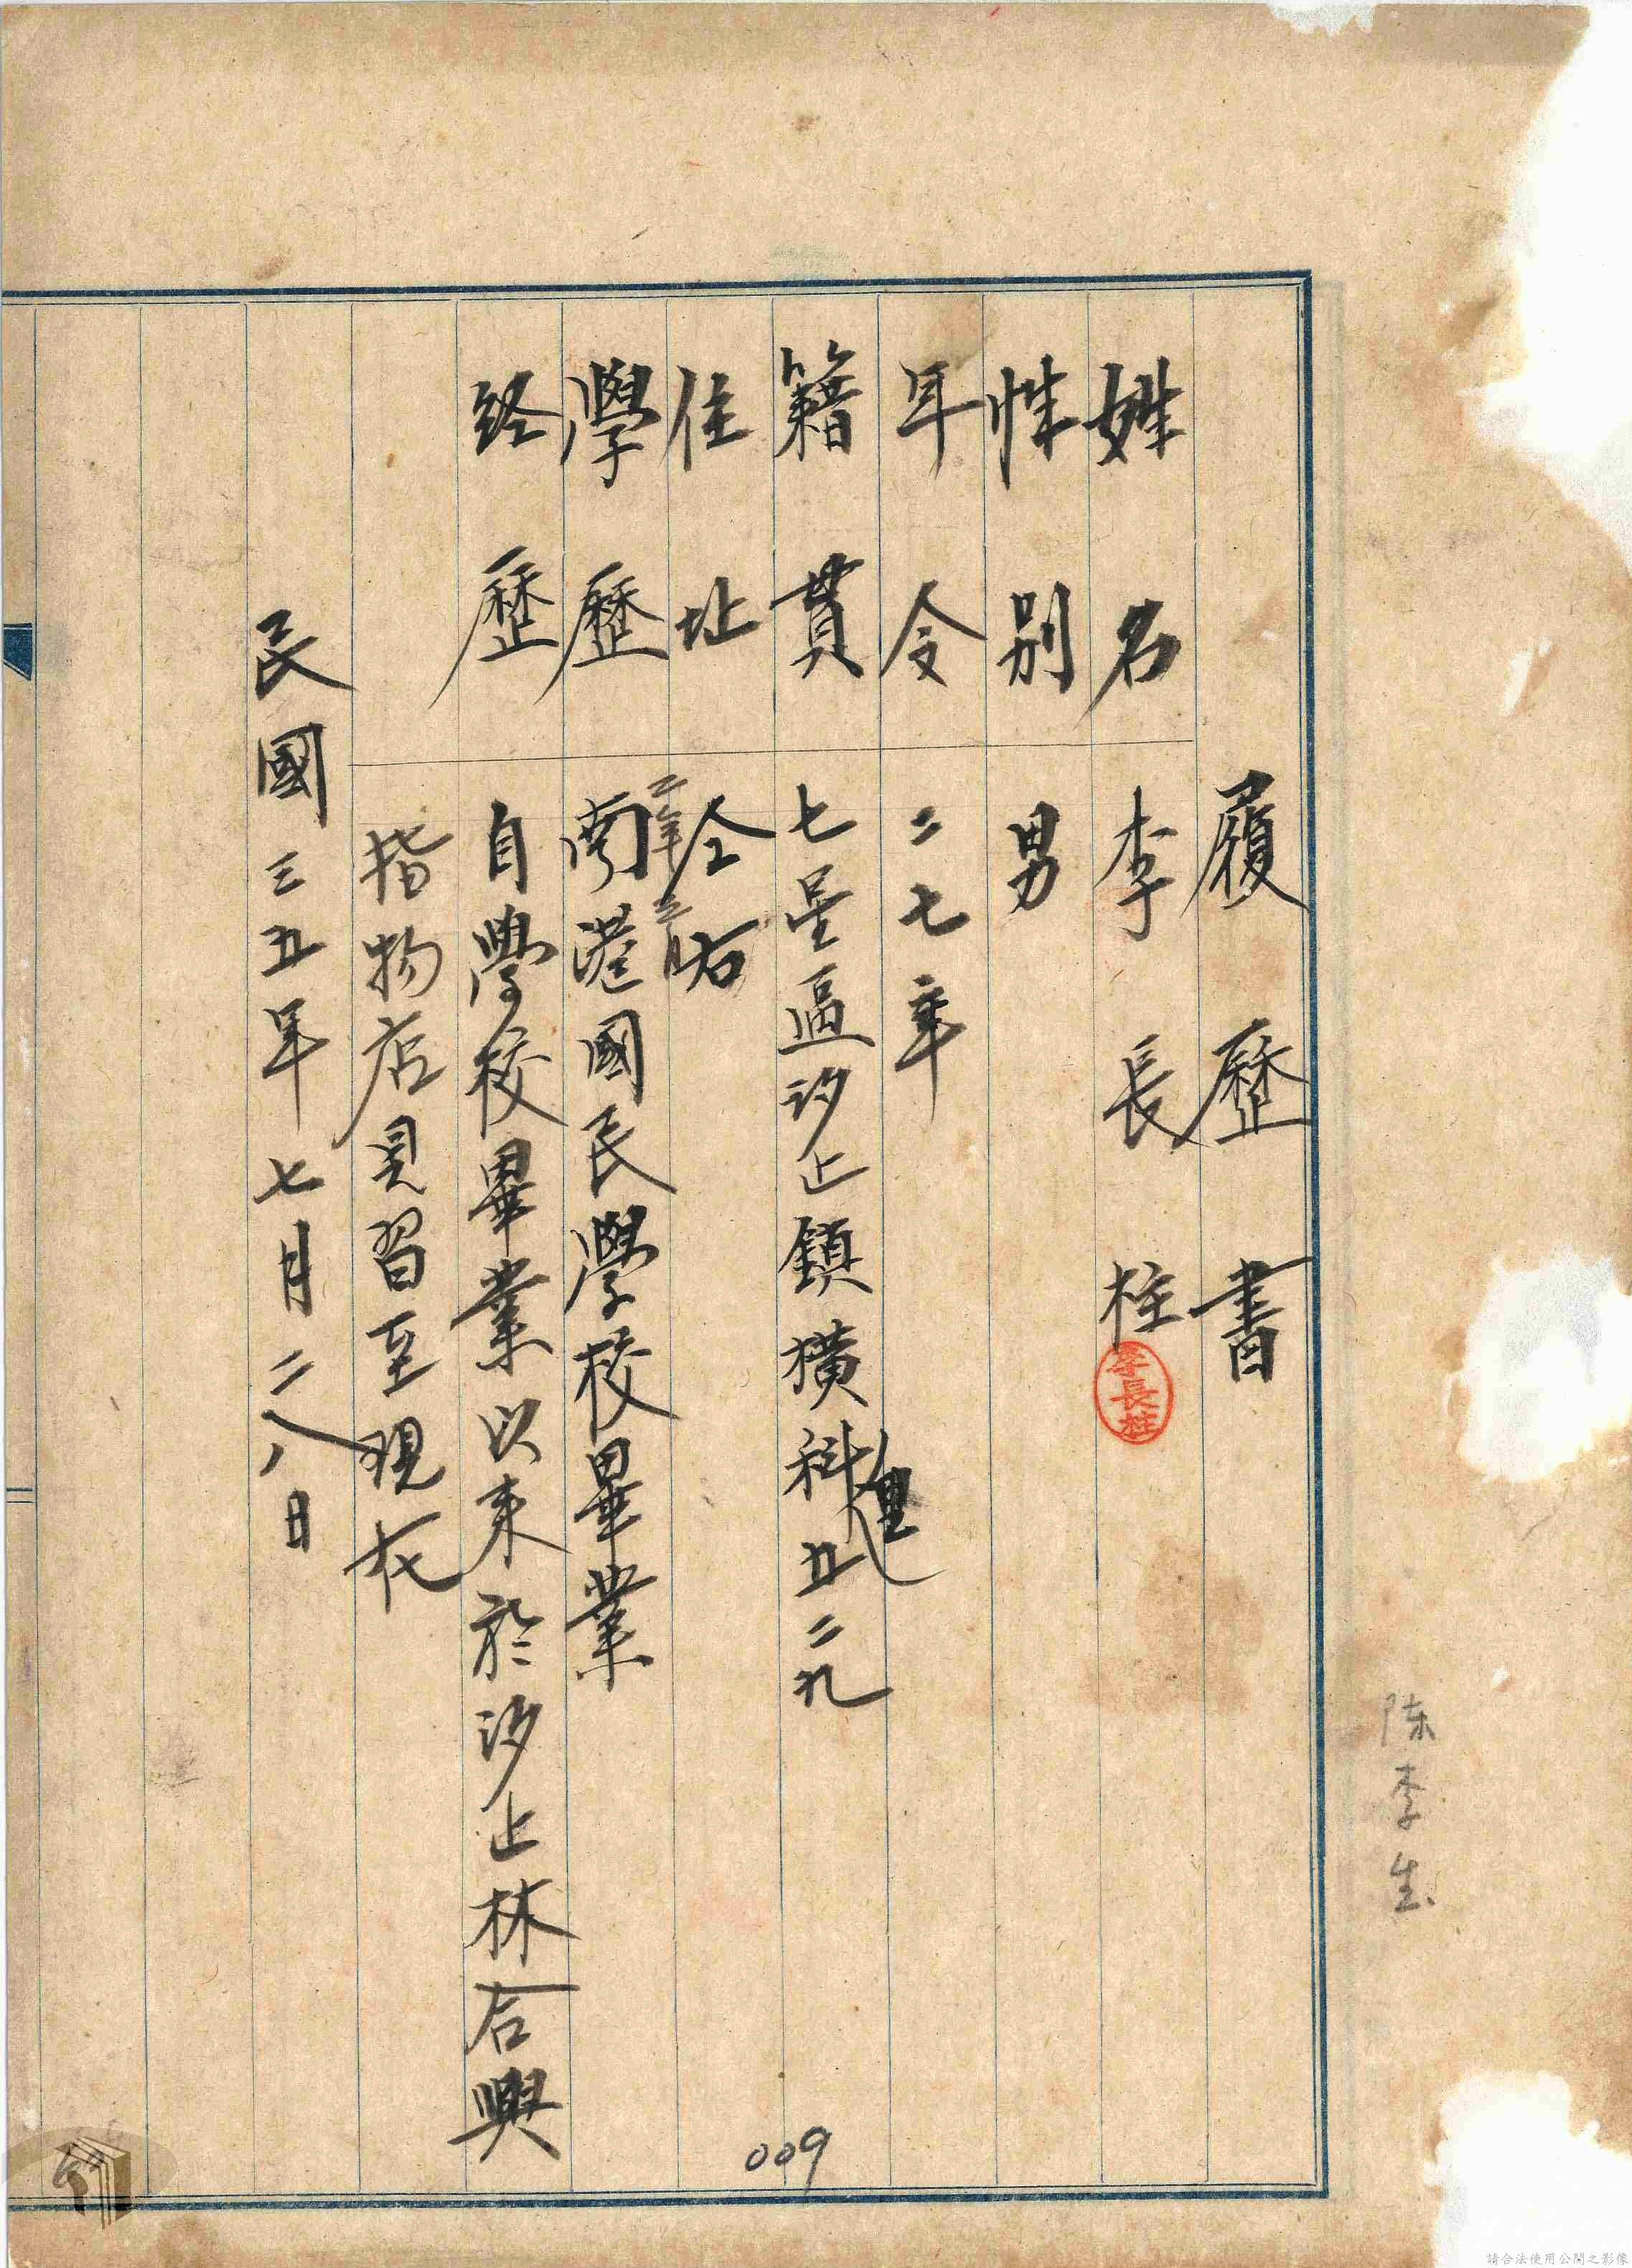 履歷書
姓名 李長柱
李長柱
性別 男
年令 二七年
籍貫 七星區汐止鎮橫科里五二九
住址 仝右
二年三月
學歷 南港國民學校畢業
経歷 自學校畢業以來於汐止林合興
物店見習至現在
民國三五年七月二八日
陈李生
009
請合法使用公開之影像